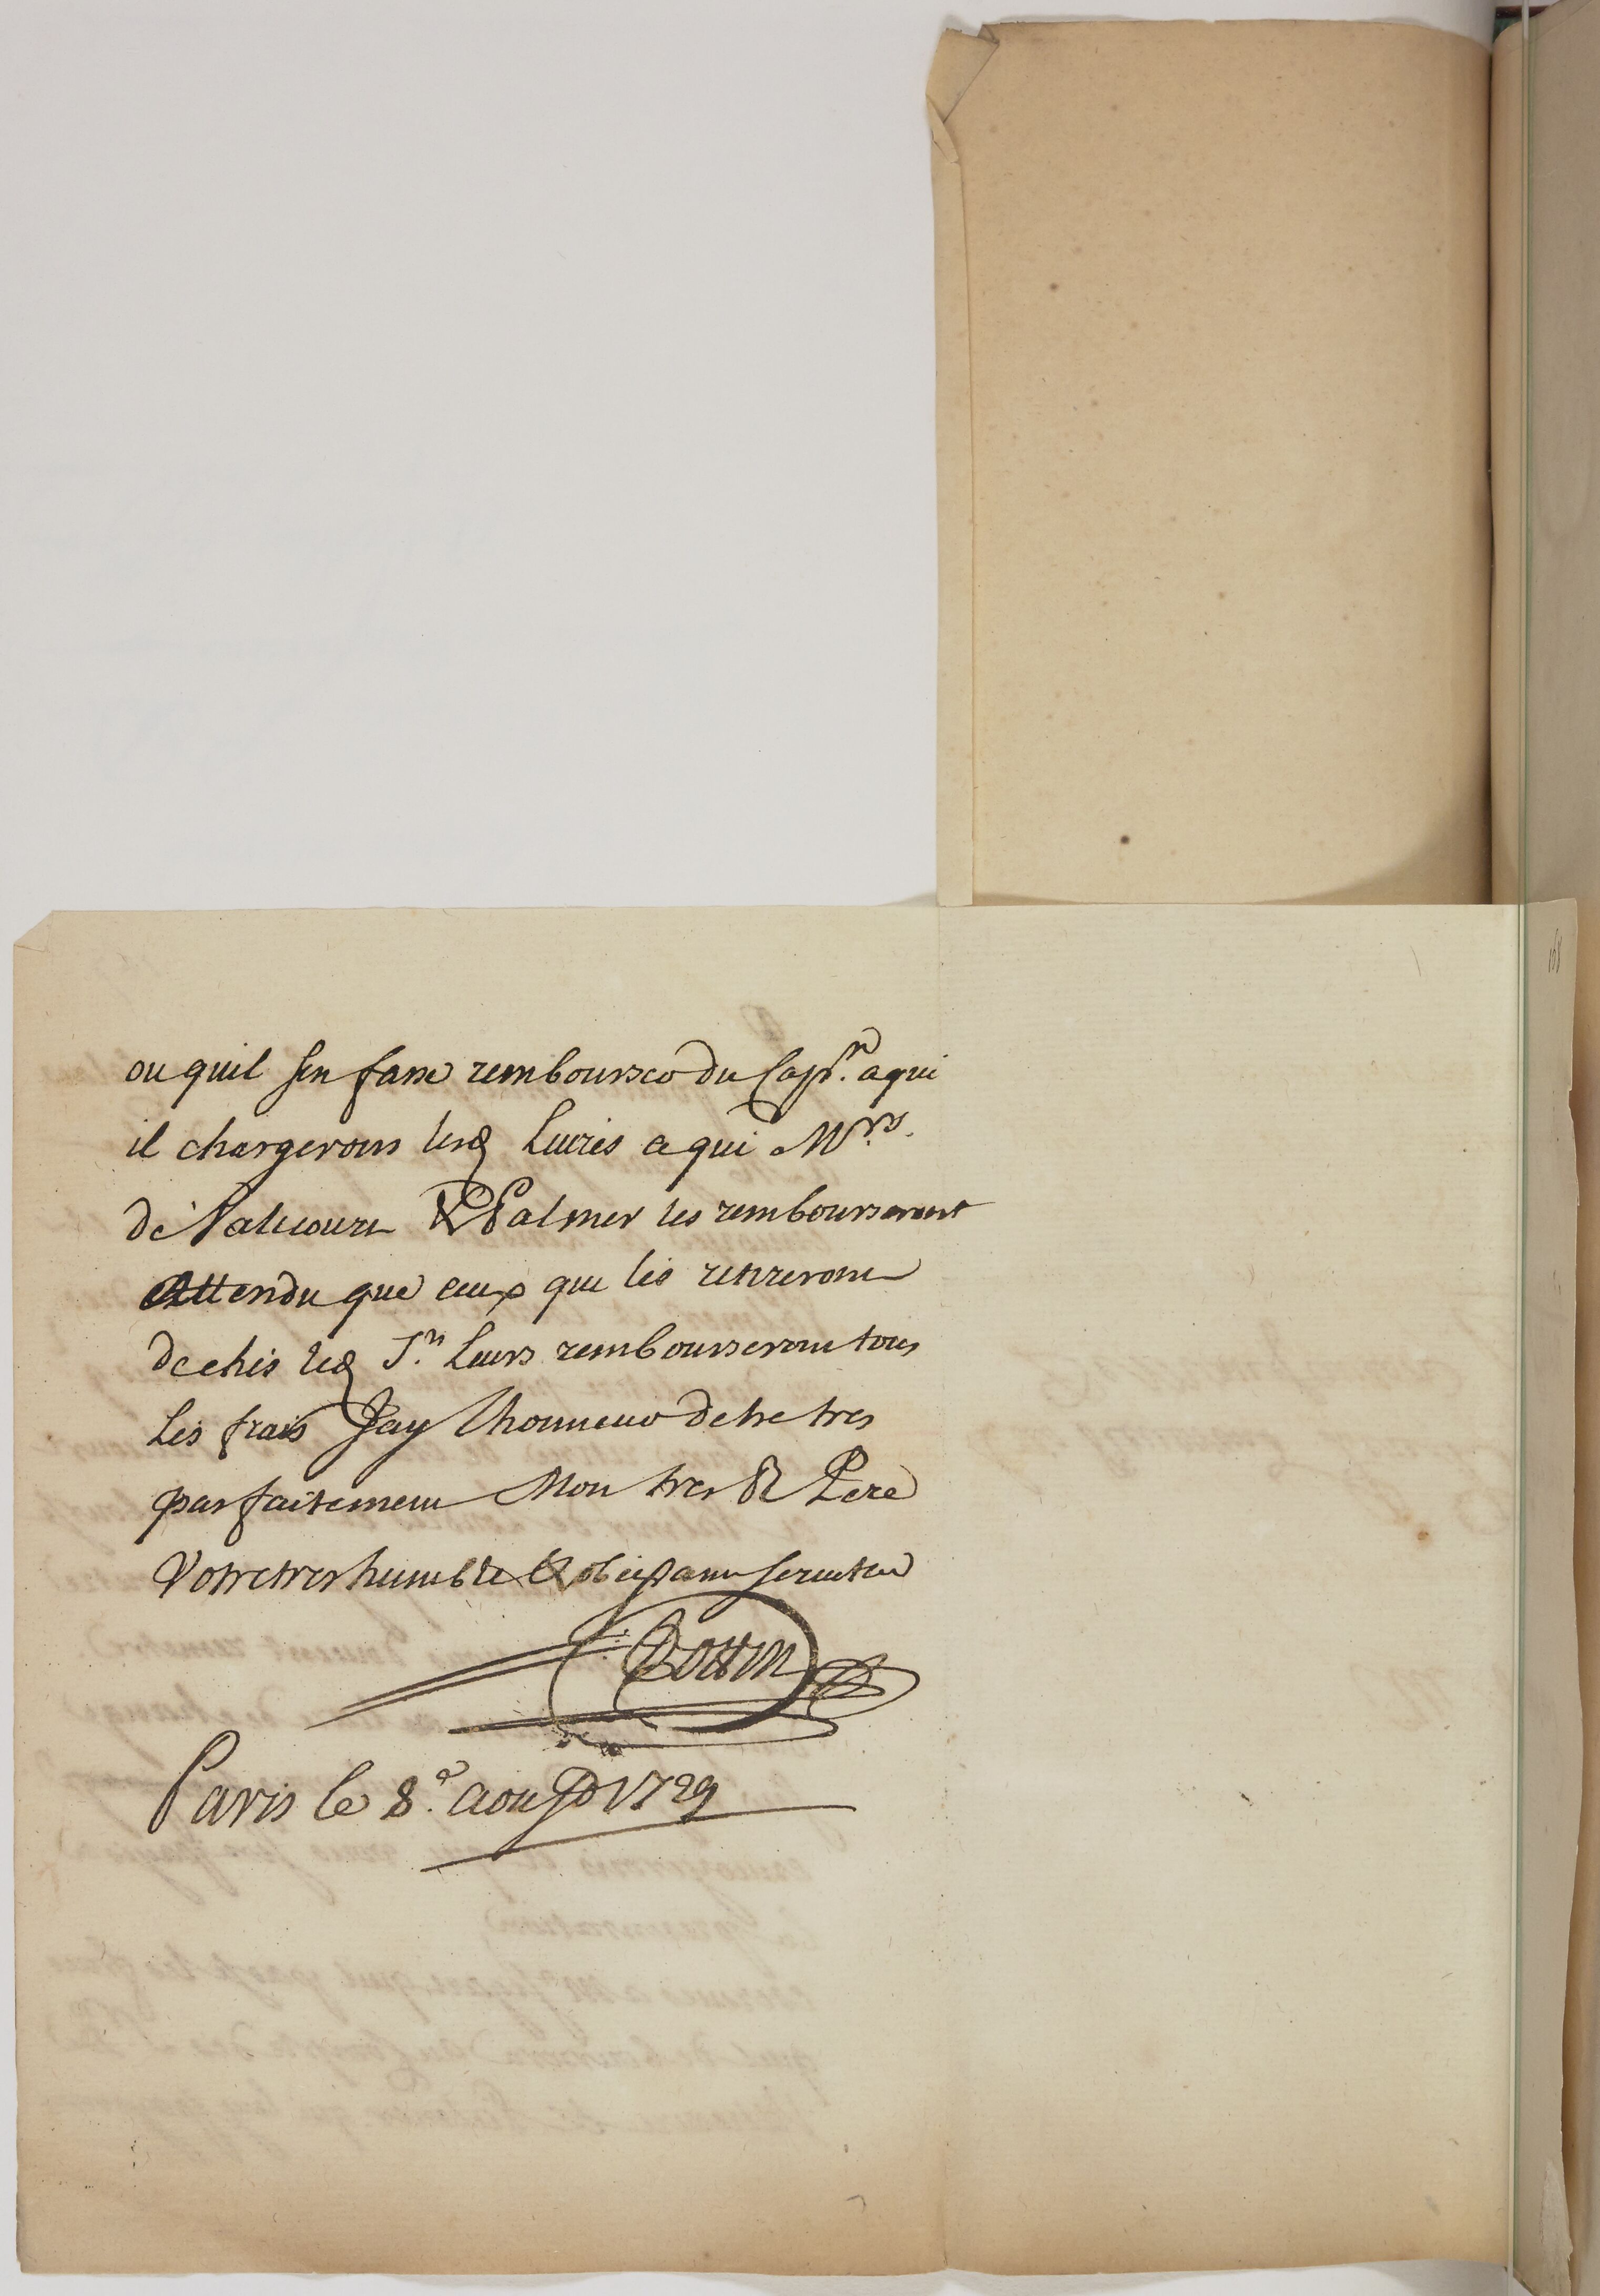 ou quil sen fasse rembourser du Capp.ⁿ a qui
il chargerons lesd livres a qui Mʳˢ.
de Valicourt & Palmer les rembourseront
Attendu que ceux qui les retireront
de chés lesd Sʳˢ leurs rembourseront tous
les frais Jay lhonneur detre tres
parfaitement Mon tres R Pere
Votre tres humble & obeissant serviteur
Paris le 8.ᵉ aoust 1729
168